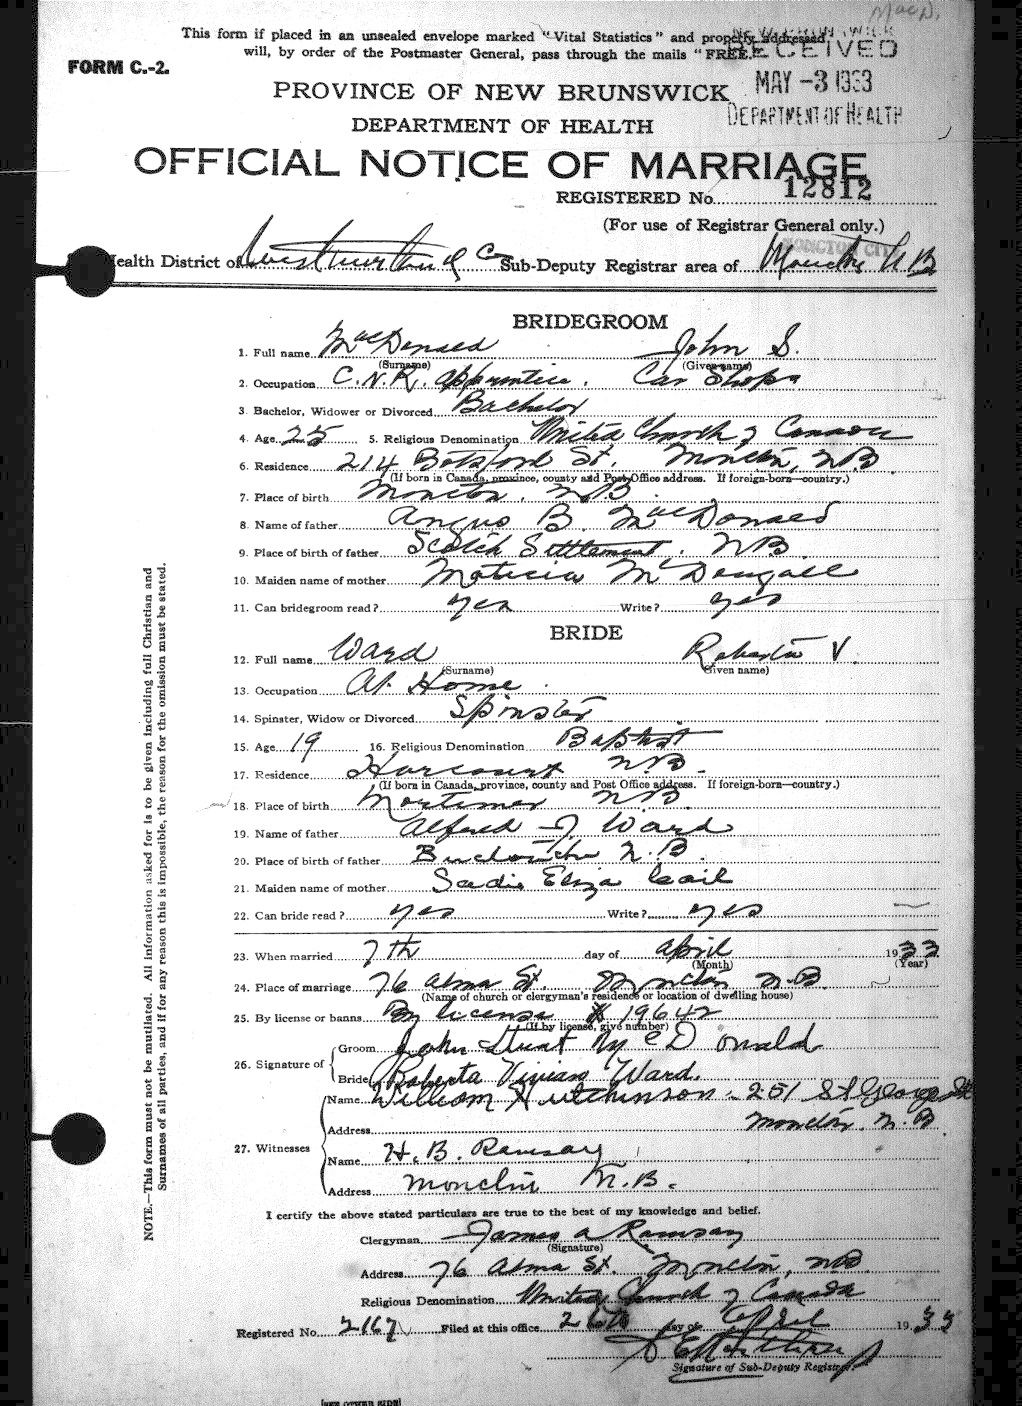 MacD.
This form if placed in an unsealed envelope marked "Vital Statistics" and properly addressed
will, by order of the Postmaster General, pass through the mails "FREE."
FORM C.-2.
NEW BRUNSWICK
RECEIVED
MAY -3 1933
DEPARTMENT OF HEALTH
PROVINCE OF NEW BRUNSWICK
DEPARTMENT OF HEALTH
OFFICIAL NOTICE OF MARRIAGE
REGISTERED No. 12812
(For use of Registrar General only.)
MONCTON CITY
Health District of Westmorland Co Sub-Deputy Registrar area of Moncton N B
BRIDEGROOM
1. Full name MacDonald John S.
(Surname) (Given name)
2. Occupation C.N.R. Apprentice. Car Shops
3. Bachelor, Widower or Divorced Bachelor
4. Age 25 5. Religious Denomination United Church of Canada
6. Residence 214 Botsford St. Moncton, N.B.
(If born in Canada, province, county and Post Office address. If foreign-born—country.)
7. Place of birth Moncton, N.B.
8. Name of father Angus B. MacDonald
9. Place of birth of father Scotch Settlement. N.B.
10. Maiden name of mother McDougall
11. Can bridegroom read? Yes Write? Yes
BRIDE
12. Full name Ward Roberta V.
(Surname) (Given name)
13. Occupation At Home.
14. Spinster, Widow or Divorced Spinster
15. Age 19 16. Religious Denomination Baptist
17. Residence Harcourt N.B.
(If born in Canada, province, county and Post Office address. If foreign-born—country.)
18. Place of birth Mortimer N.B.
19. Name of father Alfred J. Ward
20. Place of birth of father Buctouche N.B.
21. Maiden name of mother Sadie Eliza Cail
22. Can bride read? Yes Write? Yes
23. When married 7th day of April 1933
(Month) (Year)
24. Place of marriage 76 Alma St. Moncton N.B.
(Name of church or clergyman's residence or location of dwelling house)
25. By license or banns By license # 19642
(If by license, give number)
26. Signature of
Groom John Stuart McDonald
Bride Roberta Vivian Ward.
27. Witnesses
Name William Hutchinson - 251 St George St
Address Moncton. N.B.
Name H. B. Ramsay
Address Moncton N.B.
I certify the above stated particulars are true to the best of my knowledge and belief.
Clergyman James A Ramsay
(Signature)
Address 76 Alma St. Moncton, N.B.
Religious Denomination United Church of Canada
Registered No. 2167 Filed at this office 26th day of April 1933
Signature of Sub-Deputy Registrar.
NOTE.—This form must not be mutilated. All information asked for is to be given including full Christian and
Surnames of all parties, and if for any reason this is impossible, the reason for the omission must be stated.
[SEE OTHER SIDE]